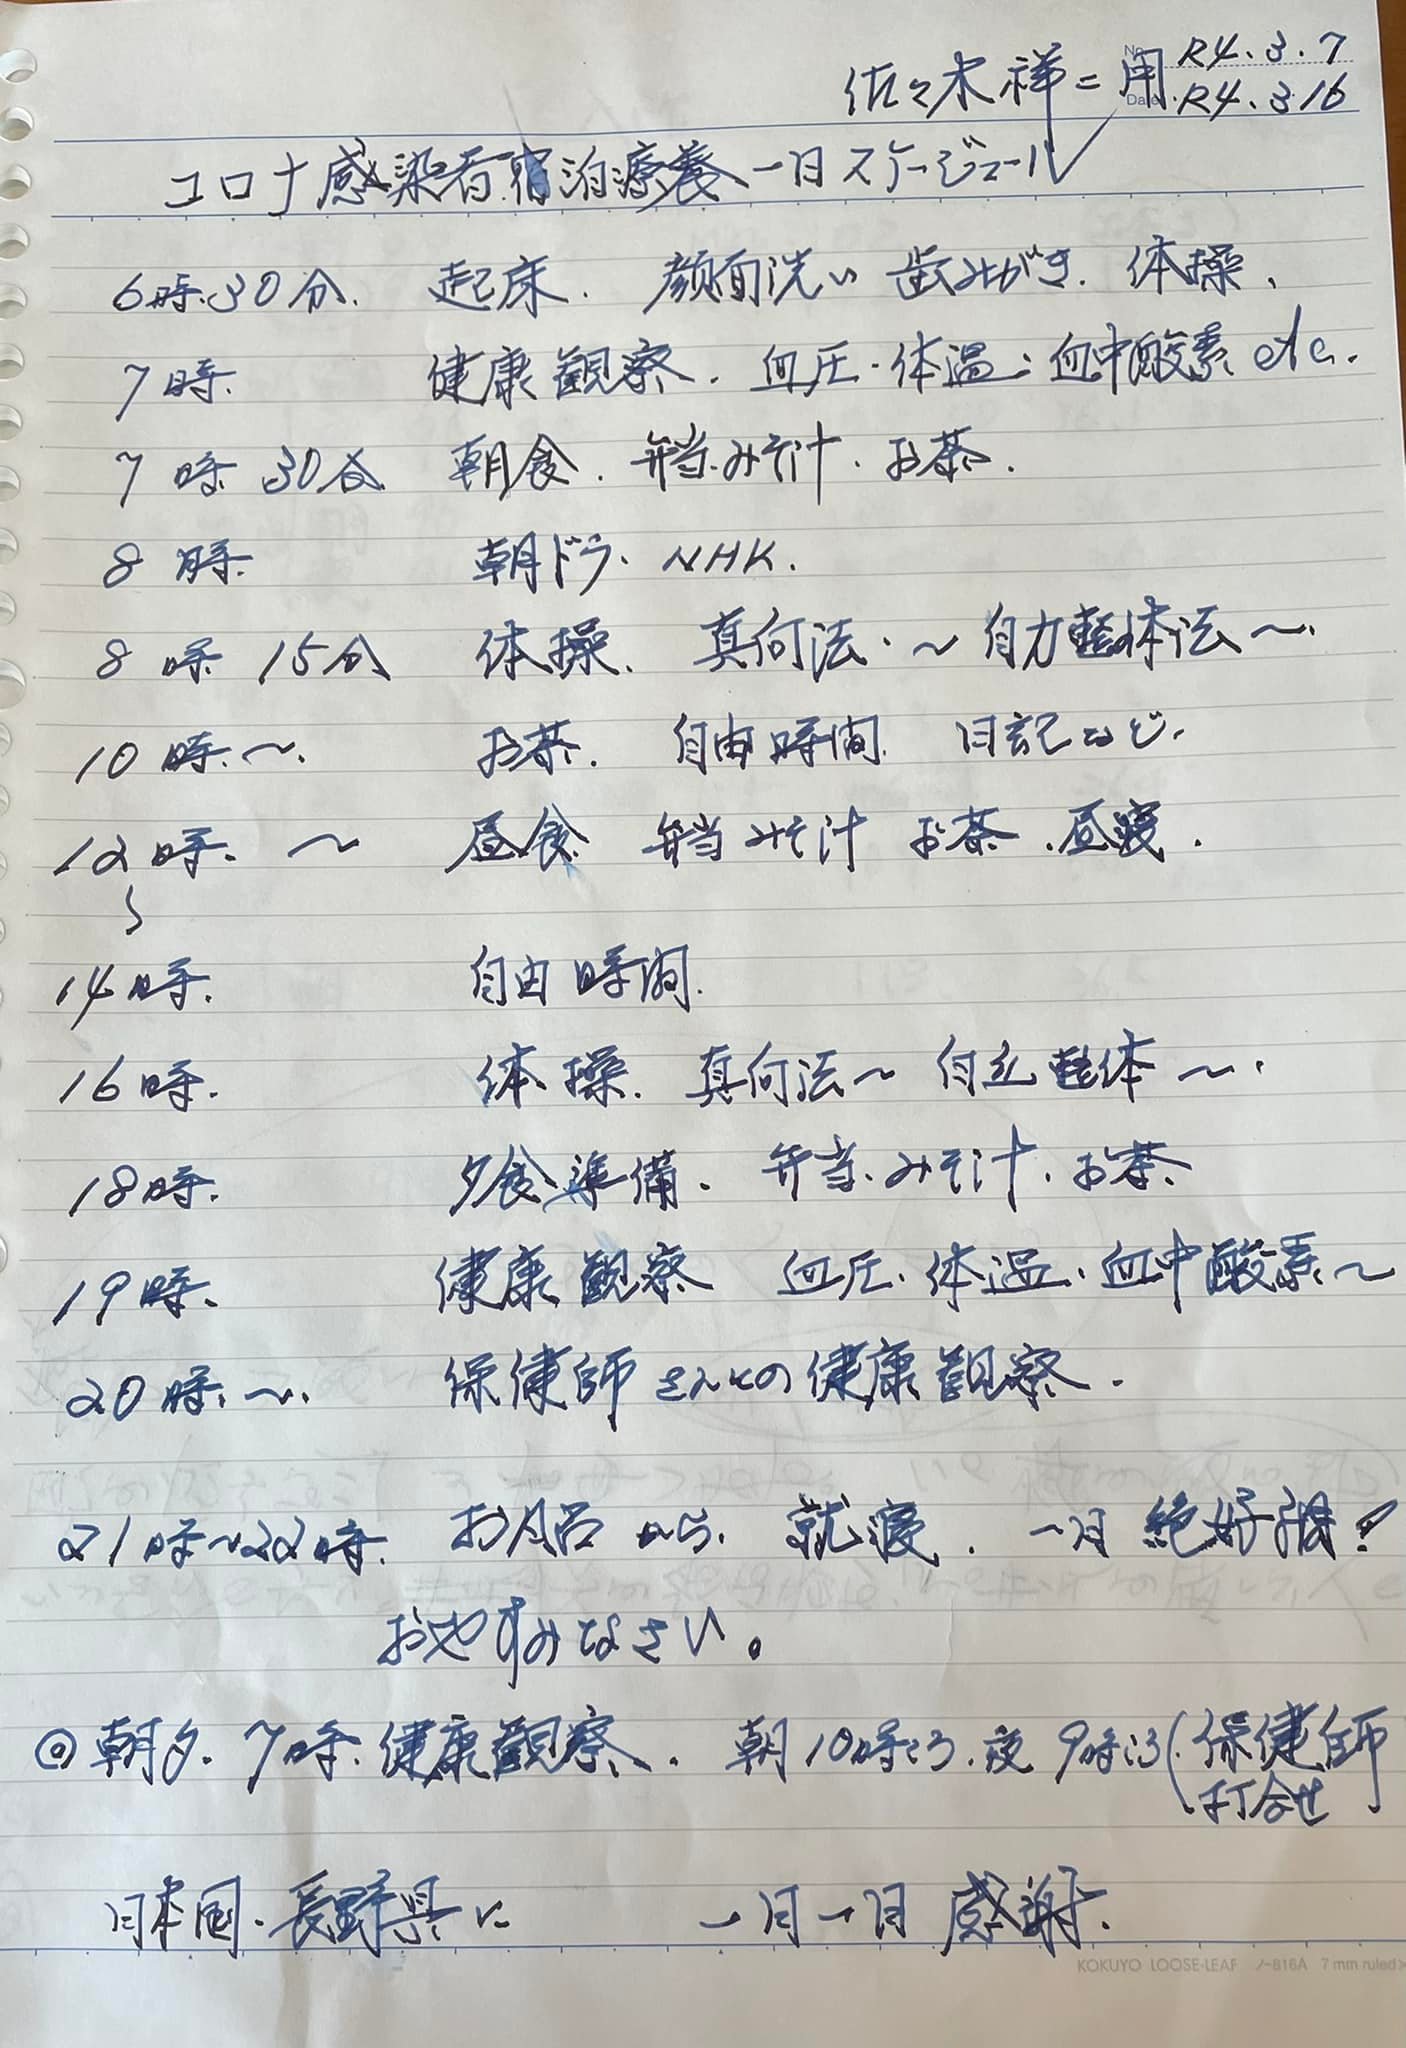 佐々木祥二 用 R4.3.7
No.
Date R4.3.16
コロナ感染者宿泊療養一日スケージュール
6時30分. 起床. 顔面洗い 歯みがき. 体操.
7時. 健康観察. 血圧・体温・血中酸素 etc.
7時30分 朝食. 弁当.みそ汁.お茶.
8時. 朝ドラ. NHK.
8時15分 体操. 真向法.〜自力整体法〜.
10時.〜. お茶. 自由時間. 日記など.
12時. 〜 昼食 弁当 みそ汁 お茶.昼寝.
〜
14時. 自由時間.
16時. 体操. 真向法〜 自力整体〜.
18時. 夕食準備. 弁当.みそ汁.お茶
19時. 健康観察 血圧.体温.血中酸素〜
20時.〜. 保健師さんとの健康観察.
21時〜22時. お風呂から. 就寝. 一日絶好調!
おやすみなさい。
◎朝夕.7時.健康観察. 朝10時ころ.夜9時ころ(保健師
打合せ)
日本国.長野県に 一日一日感謝.
KOKUYO LOOSE-LEAF ノ-816A 7 mm ruled